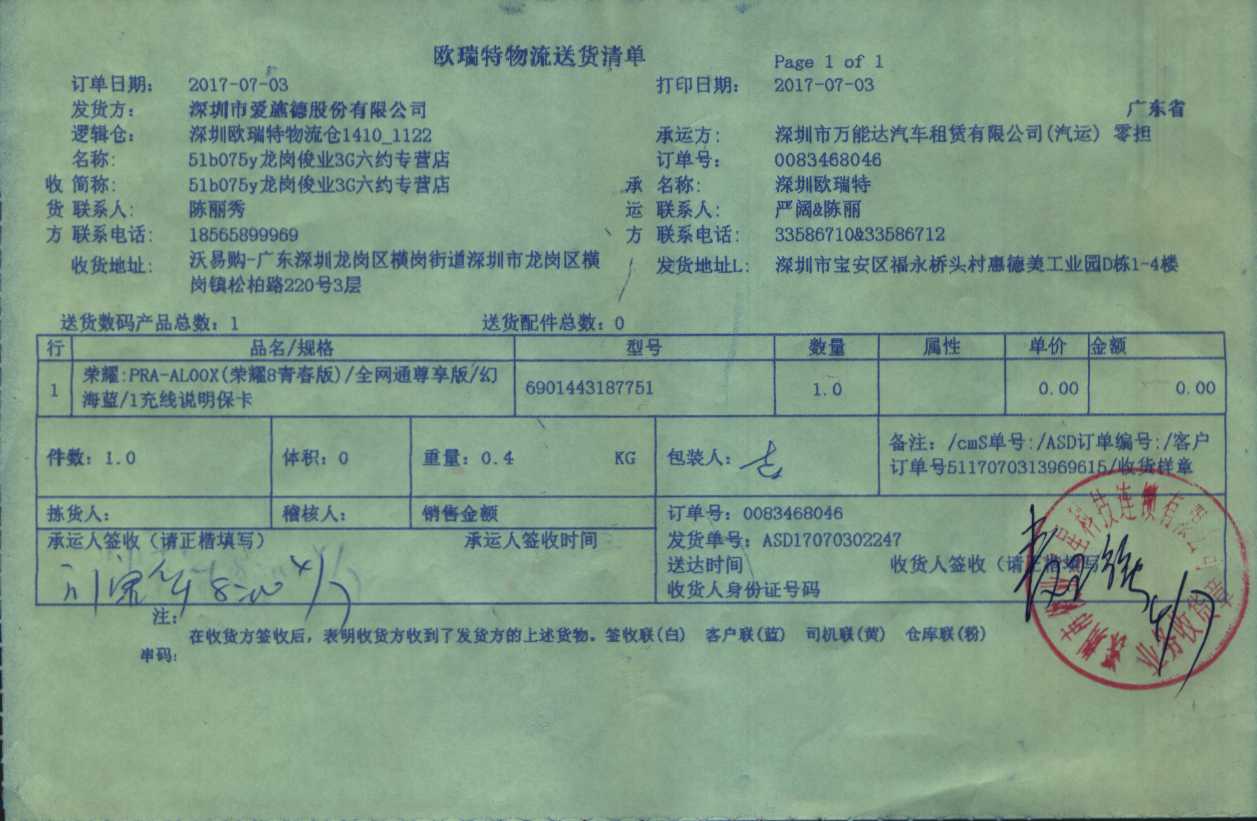 欧瑞特物流送货清单
Page 1 of 1
订单日期: 2017-07-03 打印日期: 2017-07-03
发货方: 深圳市爱施德股份有限公司 广东省
逻辑仓: 深圳欧瑞特物流仓1410_1122 承运方: 深圳市万能达汽车租赁有限公司(汽运) 零担
名称: 51b075y龙岗俊业3G六约专营店 订单号: 0083468046
收 简称: 51b075y龙岗俊业3G六约专营店 承 名称: 深圳欧瑞特
货 联系人: 陈丽秀 运 联系人: 严阔&陈丽
方 联系电话: 18565899969 方 联系电话: 33586710&33586712
收货地址: 沃易购-广东深圳龙岗区横岗街道深圳市龙岗区横 发货地址L: 深圳市宝安区福永桥头村惠德美工业园D栋1-4楼
岗镇松柏路220号3层
送货数码产品总数: 1 送货配件总数: 0
行 品名/规格 型号 数量 属性 单价 金额
1 荣耀:PRA-AL00X(荣耀8青春版)/全网通尊享版/幻 6901443187751 1.0 0.00 0.00
海蓝/1充线说明保卡
件数: 1.0 体积: 0 重量: 0.4 KG 包装人: 备注: /cmS单号:/ASD订单编号:/客户
订单号5117070313969615/收货样章
拣货人: 稽核人: 销售金额 订单号: 0083468046
承运人签收(请正楷填写) 承运人签收时间 发货单号: ASD17070302247
送达时间 收货人签收(请正楷填写)
收货人身份证号码
注:
在收货方签收后, 表明收货方收到了发货方的上述货物。签收联(白) 客户联(蓝) 司机联(黄) 仓库联(粉)
串码: